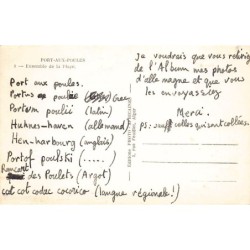 PORT-AUX-POULES
Ensemble de la Plage
Port aux poules.
Portus poulii (Grec)
Portum poulii (latin)
Huhnes-haven (allemand)
Hen-harbourg (anglais)
Portof poulski (.....)
Rancart des Poulets (Argot)
cot cot codac cocorico (langue régionale!)
Je voudrais que vous retiriez
de l'Album mes photos
d'elle magne et que vous
les envoyassiez
Merci.
PS: sauf celles qui sont collées.